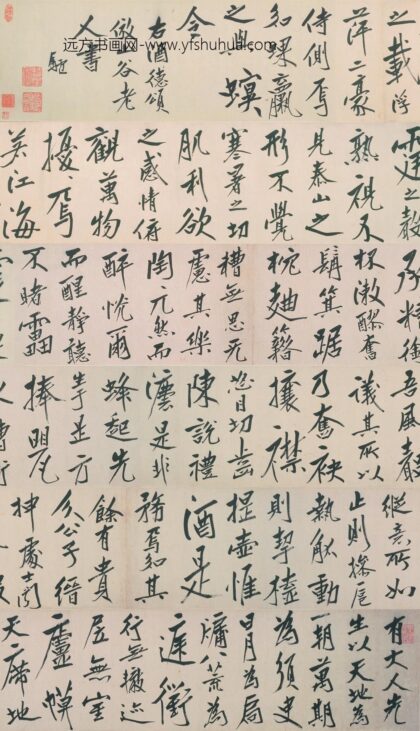 远方书画网-www.yfshuhua.com
之載浮
萍二豪
侍側焉
如蜾蠃
之與螟
令
右酒德頌
倣谷老
人書
霆之聲
熟視不
見泰山之
形不覺
寒暑之切
肌利欲
之感情俯
觀萬物
擾焉
若江海
杯漱醪奮
髯箕踞
枕麴籍
糟無思无
慮其樂
陶兀然而
醉怳爾
而醒靜聽
不睹雷
吾風聲
議其所以
乃奮袂
攘襟
怒目切齒
陳說禮
灋是非
蜂起先
生於是方
捧甖
縱意所如
止則操巵
執觚動
則挈榼
提壺惟
酒是
務焉知其
餘有貴
介公子縉
紳處士聞
有大人先
生以天地為
一朝萬期
為須臾
日月為扃
牖八荒為
庭衢
行無轍迹
居無室
廬幙
天席地